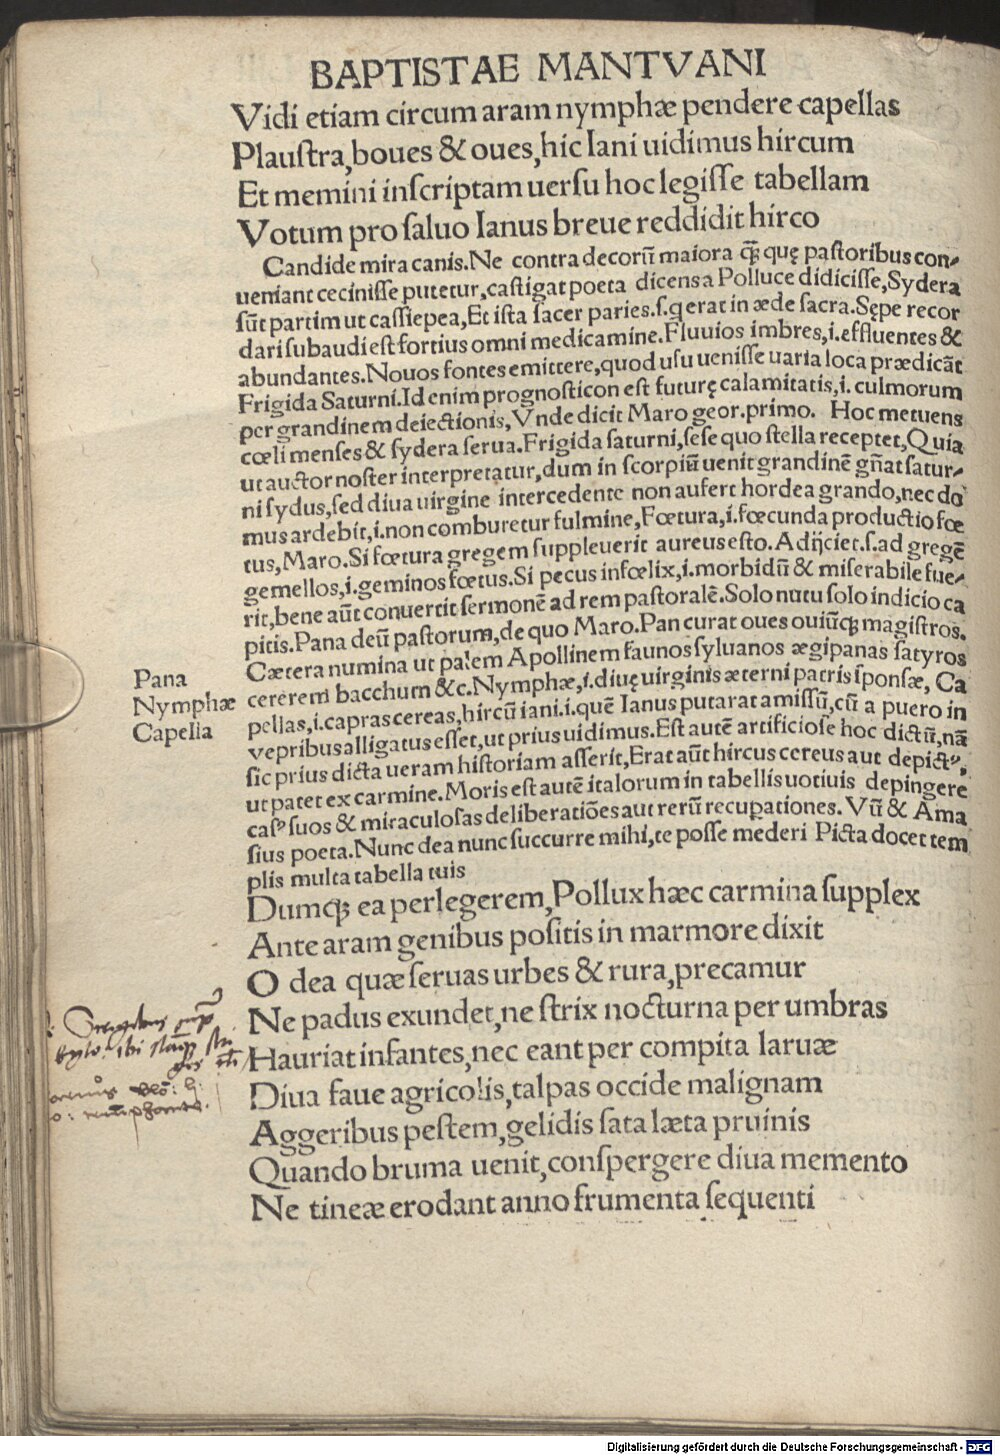 BAPTISTAE MANTVANI
Vidi etiam circum aram nymphæ pendere capellas
Plauſtra, boues & oues, hic Iani uidimus hircum
Et memini inſcriptam uerſu hoc legiſſe tabellam
Votum pro ſaluo Ianus breue reddidit hirco
Candide mira canis. Ne contra decorū maiora q̄ꝫ quę paſtoribus con-
ueniant ceciniſſe putetur, caſtigat poeta dicens a Polluce didiciſſe, Sydera
ſūt partim ut caſſiepea, Et iſta ſacer paries. ſ. q erat in æde ſacra. Sępe recor
dari ſubaudi eſt fortius omni medicamine. Fluuios imbres, i. effluentes &
abundantes. Nouos fontes emittere, quod uſu ueniſſe uaria loca prædicāt
Frigida Saturni. Id enim prognoſticon eſt futurę calamitatis, i. culmorum
per grandinem deiectionis, Vnde dicit Maro geor. primo. Hoc metuens
cœli menſes & ſydera ſerua. Frigida ſaturni, ſeſe quo ſtella receptet, Quia
ut auctor noſter interpretatur, dum in ſcorpiū uenit grandinē gn̄at ſatur-
ni ſydus, ſed diua uirgine intercedente non aufert hordea grando, nec do
mus ardebit, i. non comburetur fulmine, Fœtura, i. fœcunda productio fœ
tus, Maro. Si fœtura gregem ſuppleuerit aureus eſto. Adijciet. ſ. ad gregē
gemellos, i. geminos fœtus. Si pecus infœlix, i. morbidū & miſerabile fue-
rit, bene aūt conuertit ſermonē ad rem paſtoralē. Solo nutu ſolo indicio ca
pitis. Pana deū paſtorum, de quo Maro. Pan curat oues ouiūqꝫ magiſtros.
Cætera numina ut palem Apollinem faunos ſyluanos ægipanas ſatyros
Pana
cererem bacchum &c. Nymphæ, i. diuę uirginis æterni patris ſponſæ, Ca
Nymphæ
pellas, i. capras cereas, hircū iani. i. quē Ianus putarat amiſſū, cū a puero in
Capella
vepribus alligatus eſſet, ut prius uidimus. Eſt autē artificioſe hoc dictū, nā
ſic prius dicta ueram hiſtoriam aſſerit, Erat aūt hircus cereus aut depictꝰ,
ut patet ex carmine. Moris eſt autē italorum in tabellis uotiuis depingere
caſꝰ ſuos & miraculoſas deliberatiōes aut rerū recupationes. Vū & Ama
ſius poeta. Nunc dea nunc ſuccurre mihi, te poſſe mederi Picta docet tem
plis multa tabella tuis
Dumqꝫ ea perlegerem, Pollux hæc carmina ſupplex
Ante aram genibus poſitis in marmore dixit
O dea quæ ſeruas urbes & rura, precamur
Ne padus exundet, ne ſtrix nocturna per umbras
Hauriat infantes, nec eant per compita laruæ
Diua faue agricolis, talpas occide malignam
Aggeribus peſtem, gelidis ſata læta pruinis
Quando bruma uenit, conſpergere diua memento
Ne tineæ erodant anno frumenta ſequenti
Digitalisierung gefördert durch die Deutsche Forschungsgemeinschaft - DFG